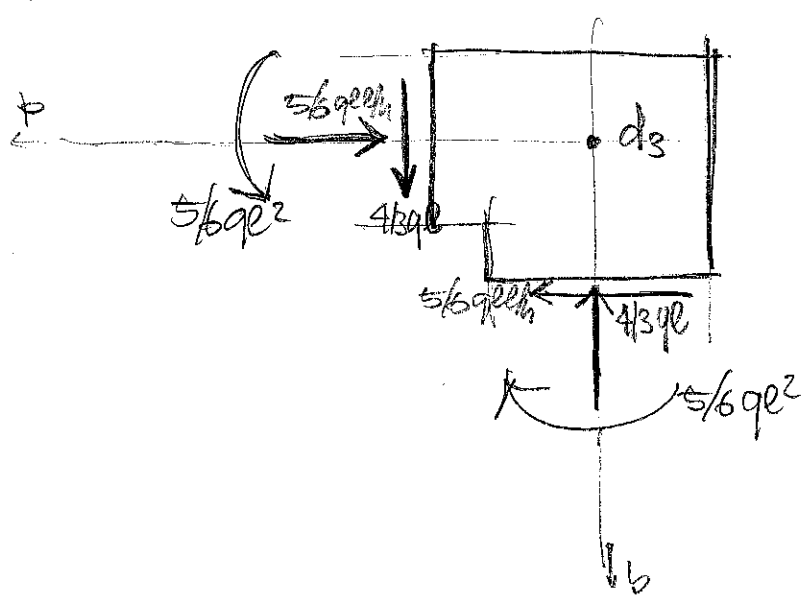 5/6 qll/h
p
d3
5/6ql²
4/3ql
5/6 qll/h
4/3 ql
5/6 ql²
b